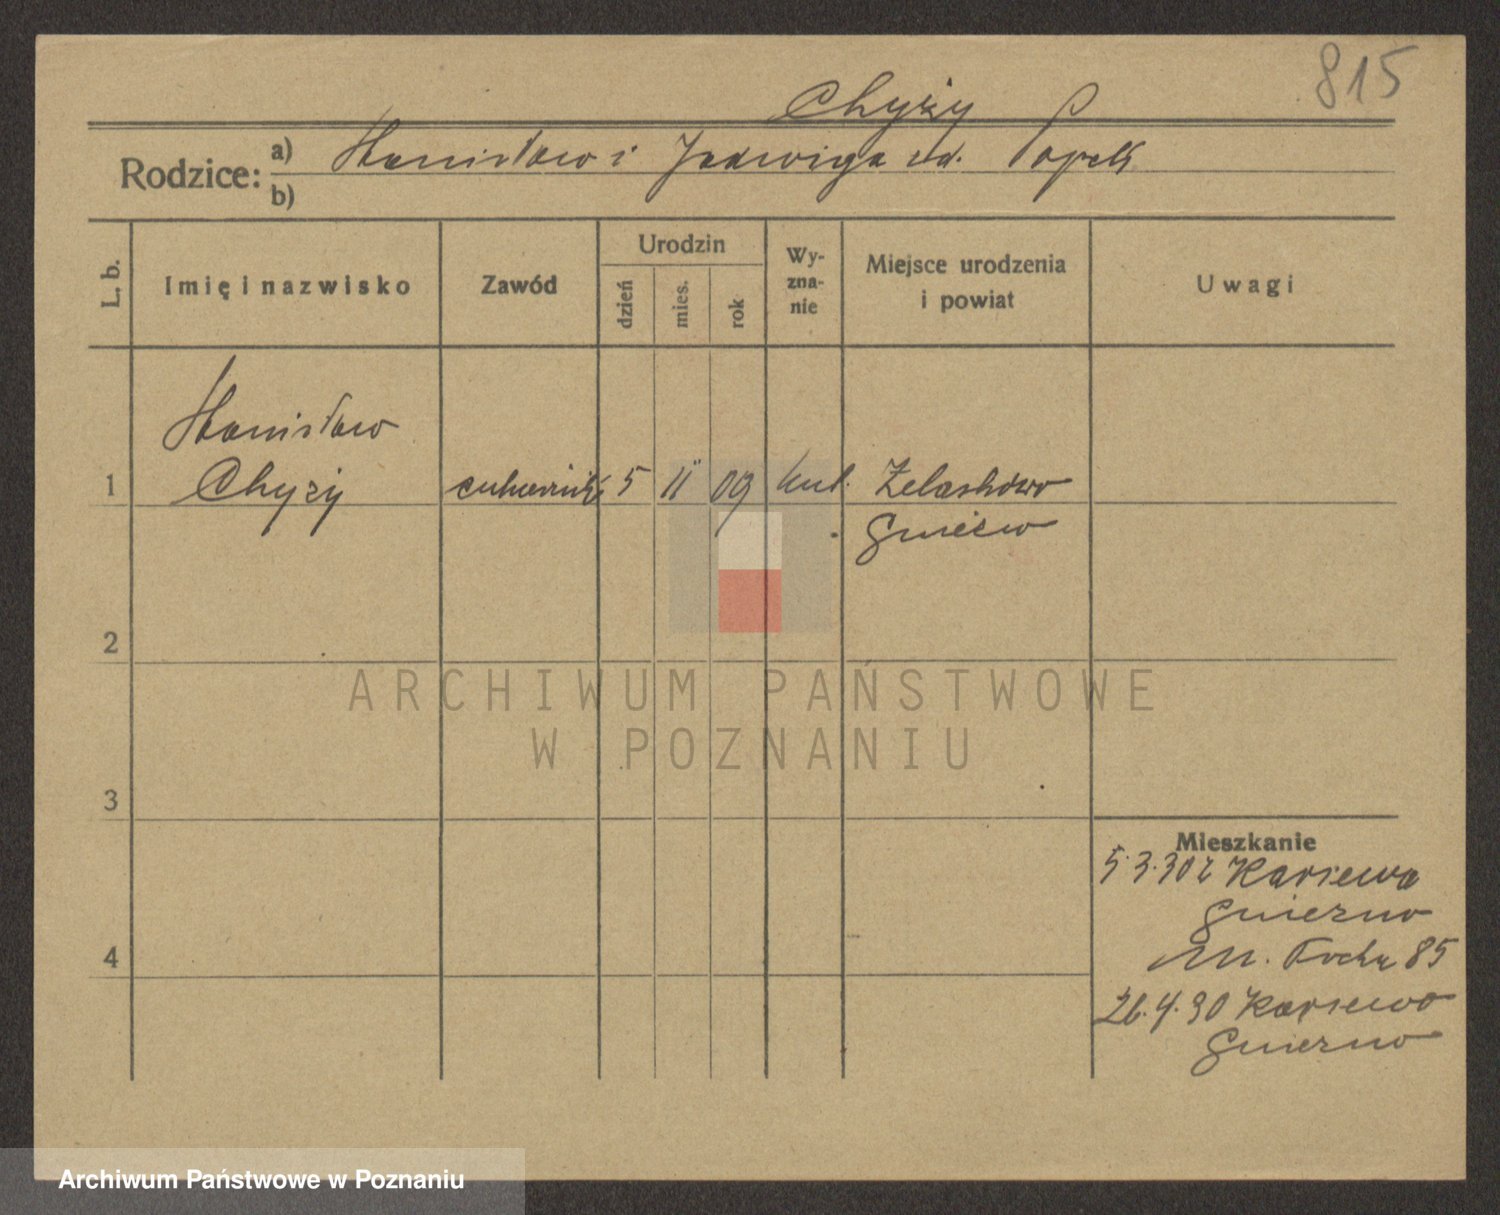 815
Chyży
Rodzice: a) Stanisław i Jadwiga zd. Popek
b)
L. b. Imię i nazwisko Zawód Urodzin dzień mies. rok Wyznanie Miejsce urodzenia i powiat Uwagi
Stanisław
1 Chyży cukiernik 5 11 09 kat. Żelaskowo
Gniezno
2
ARCHIWUM PAŃSTWOWE
W POZNANIU
3
Mieszkanie
5.3.30 z Karsewa
Gniezno
85
4
26.4.30 Karsewo
Gniezno
Archiwum Państwowe w Poznaniu